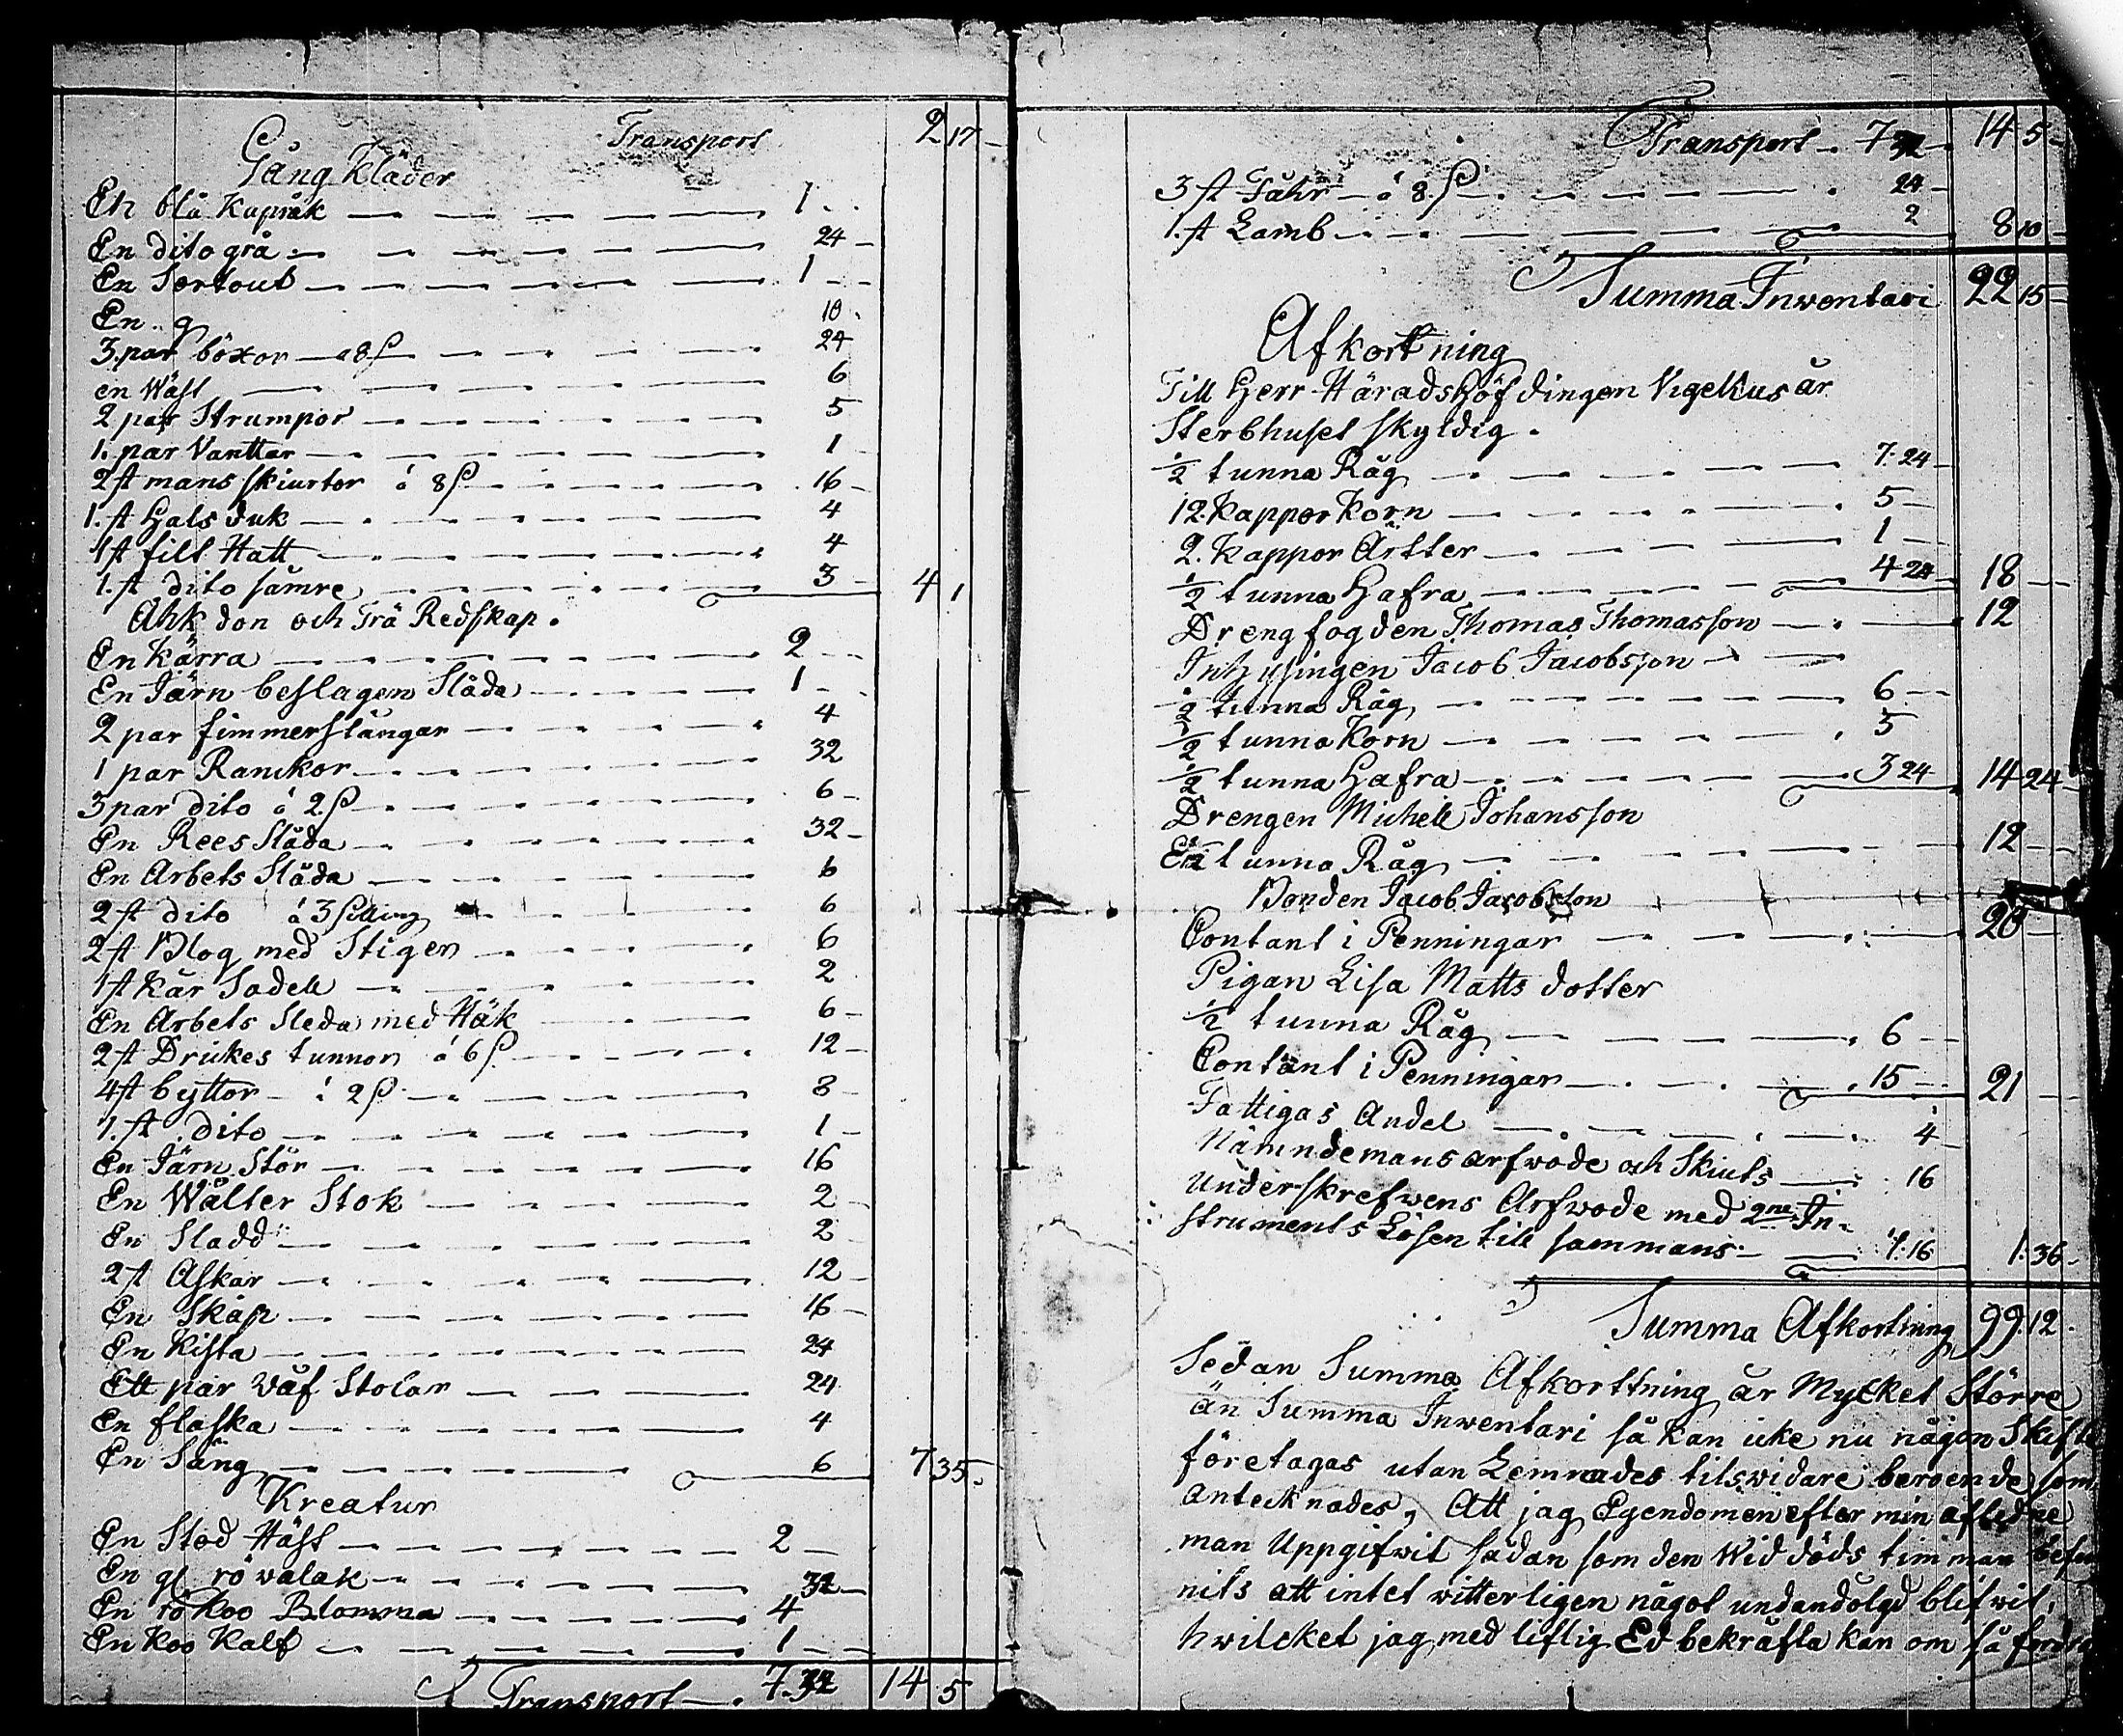 Transport 2 17 -
Gång Kläder
En blå Kapråk 1 - -
En dito grå 24 -
En Sortout 1 - -
En g 10 -
3 par böxor a 8 ß 24
en Wäst 6
2 par Strumpor 5
1. par Vanttar 1
2 st mans skiurtor á 8 ß 16 -
1. st Hals duk 4
1 st filt Hatt 4
1. st dito sämre 3 - 4 1
Åhk don och Trä Redskap.
En Kärra 2 - -
En Järn beslagen Släda 1 - -
2 par fimmerstänger 4
1 par Ranckor 32
3 par dito á 2 ß 6 -
En Rees Släda 32 -
En Arbets Släda 6
2 st dito á 3 silling 6
2 st Plog med Stigen 6
1 st Kär Sadell 2
En Arbets Sleda med Häk 6 -
2 st Drickes tunnor á 6 ß 12 -
4 st byttor á 2 ß 8 -
1. st dito 1 -
En Järn Stör 16
En Wälter Stok 2
En Sladd 2
2 st Askar 12
En Skåp 16 -
En Kista 24
Ett par Wäf Stolar 24
En flaska 4
En Säng 6 7 35 -
Kreatur
En Stod Häst 2 -
En gl rö walak 32 -
En rö Koo Blomma 4
En Koo Kalf 1 - -
Transport 7. 32 14 5
Transport 7 32 14 5 -
3 st Fåhr á 8. ß 24 -
1. st Lamb 2 8 10 -
Summa Inwentari 22 15 -
Afkortning
Till Herr Häradshöfdingen Vigelius är
Sterbhuset skyldig.
1/2 tunna Råg 7. 24 -
12. Kappor Korn 5 -
2. Kappor Ärtter 1 -
1/2 tunna Hafra 4 24 18 - -
Dreng fogden Thomas Thomasson 12
Inhysingen Jacob Jacobsson
1/2 tunna Råg 6 - -
1/2 tunna Korn 5
1/2 tunna Hafra 3 24 14 24 -
Drengen Michell Johansson
tunna Råg 12 - -
Bonden Jacob Jacobsson
Contant i Penningar 20 -
Pigan Lisa Matts dotter
1/2 tunna Råg 6 - -
Contant i Penningar 15 - - 21 - -
Fattigas Andel 4 -
Nämndemans arfwode och Skiuts 16
Underskrefwens Arfwode med 2ne In-
struments Lösen till sammans 1: 16 1: 36 -
Summa Afkortning 99. 12.
Sedan Summa Afkorttning är Mycket Större
än Summa Inwentari så kan icke nu någon Skifte
företagas utan Lemnades tilswidare beroende som
antecknades, Att jag Egendomen efter min afledne
man Uppgifwit sådan som den Wid döds timman befun
nits att intet witterligen något undandölgd blifwit,
hwilcket jag med liflig Ed bekräfta kan om så fordra